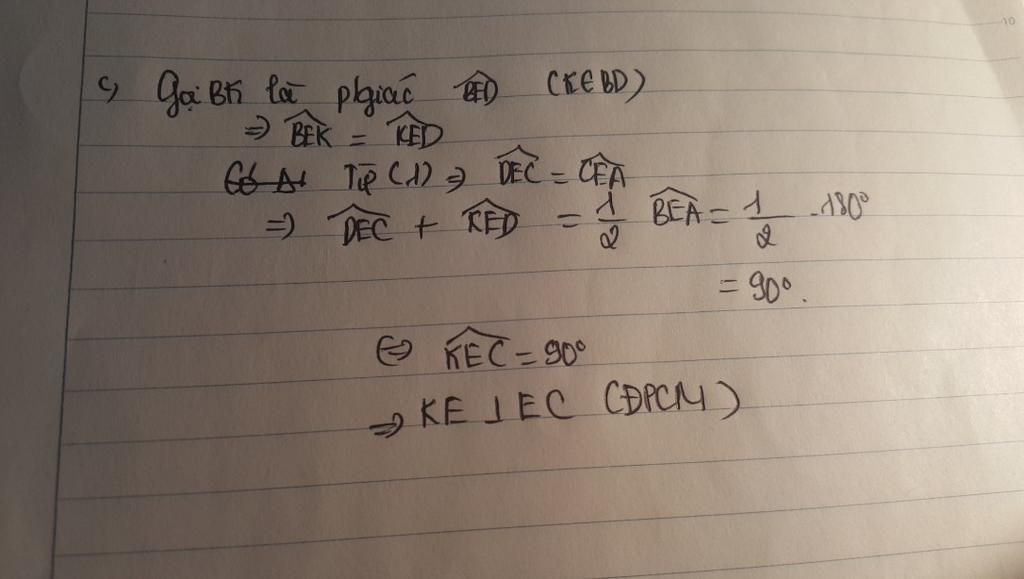 10
c) Gọi BK là pgiác $\widehat{BED}$ (K∈BD)
=> $\widehat{BEK}$ = $\widehat{KED}$
Từ (1) => $\widehat{DEC}$ = $\widehat{CEA}$
=> $\widehat{DEC}$ + $\widehat{KED}$ = $\frac{1}{2}$ $\widehat{BEA}$ = $\frac{1}{2}$ . 180°
= 90°.
<=> $\widehat{KEC}$ = 90°
=> KE ⊥ EC (ĐPCM)